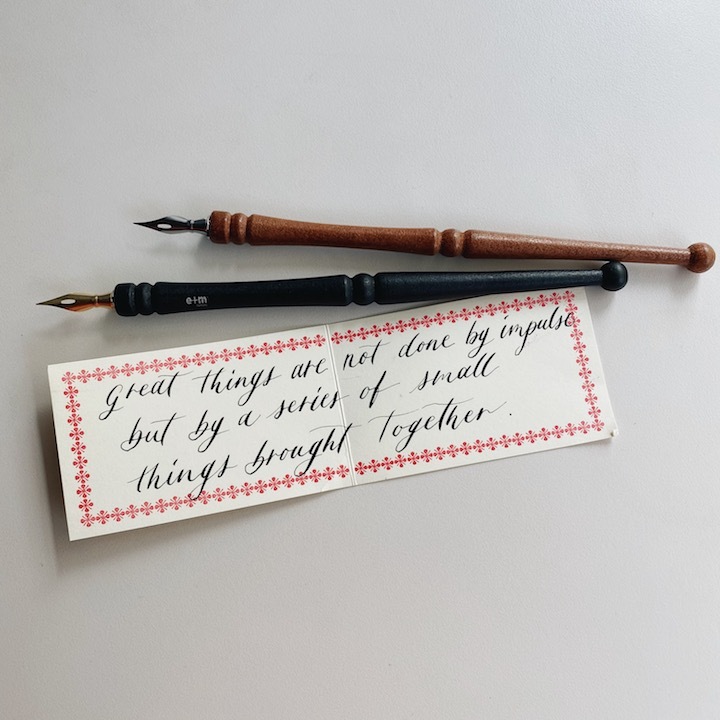 e+m
great things are not done by impulse
but by a series of small
things brought together.